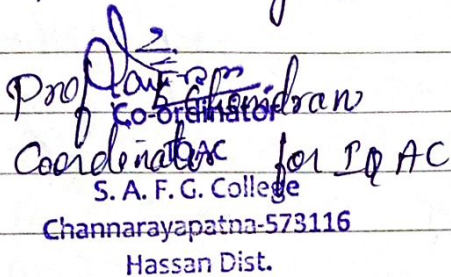 Prof
Co-ordinator
Coordinator for IQAC
IQAC
S. A. F. G. College
Channarayapatna-573116
Hassan Dist.